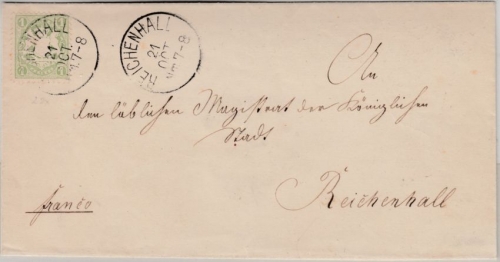 REICHENHALL
21
OCT.
NM.7-8
REICHENHALL
21
OCT
NM.7-8
An
den löblichen Magistrat der Königlichen
Stadt
Reichenhall
franco